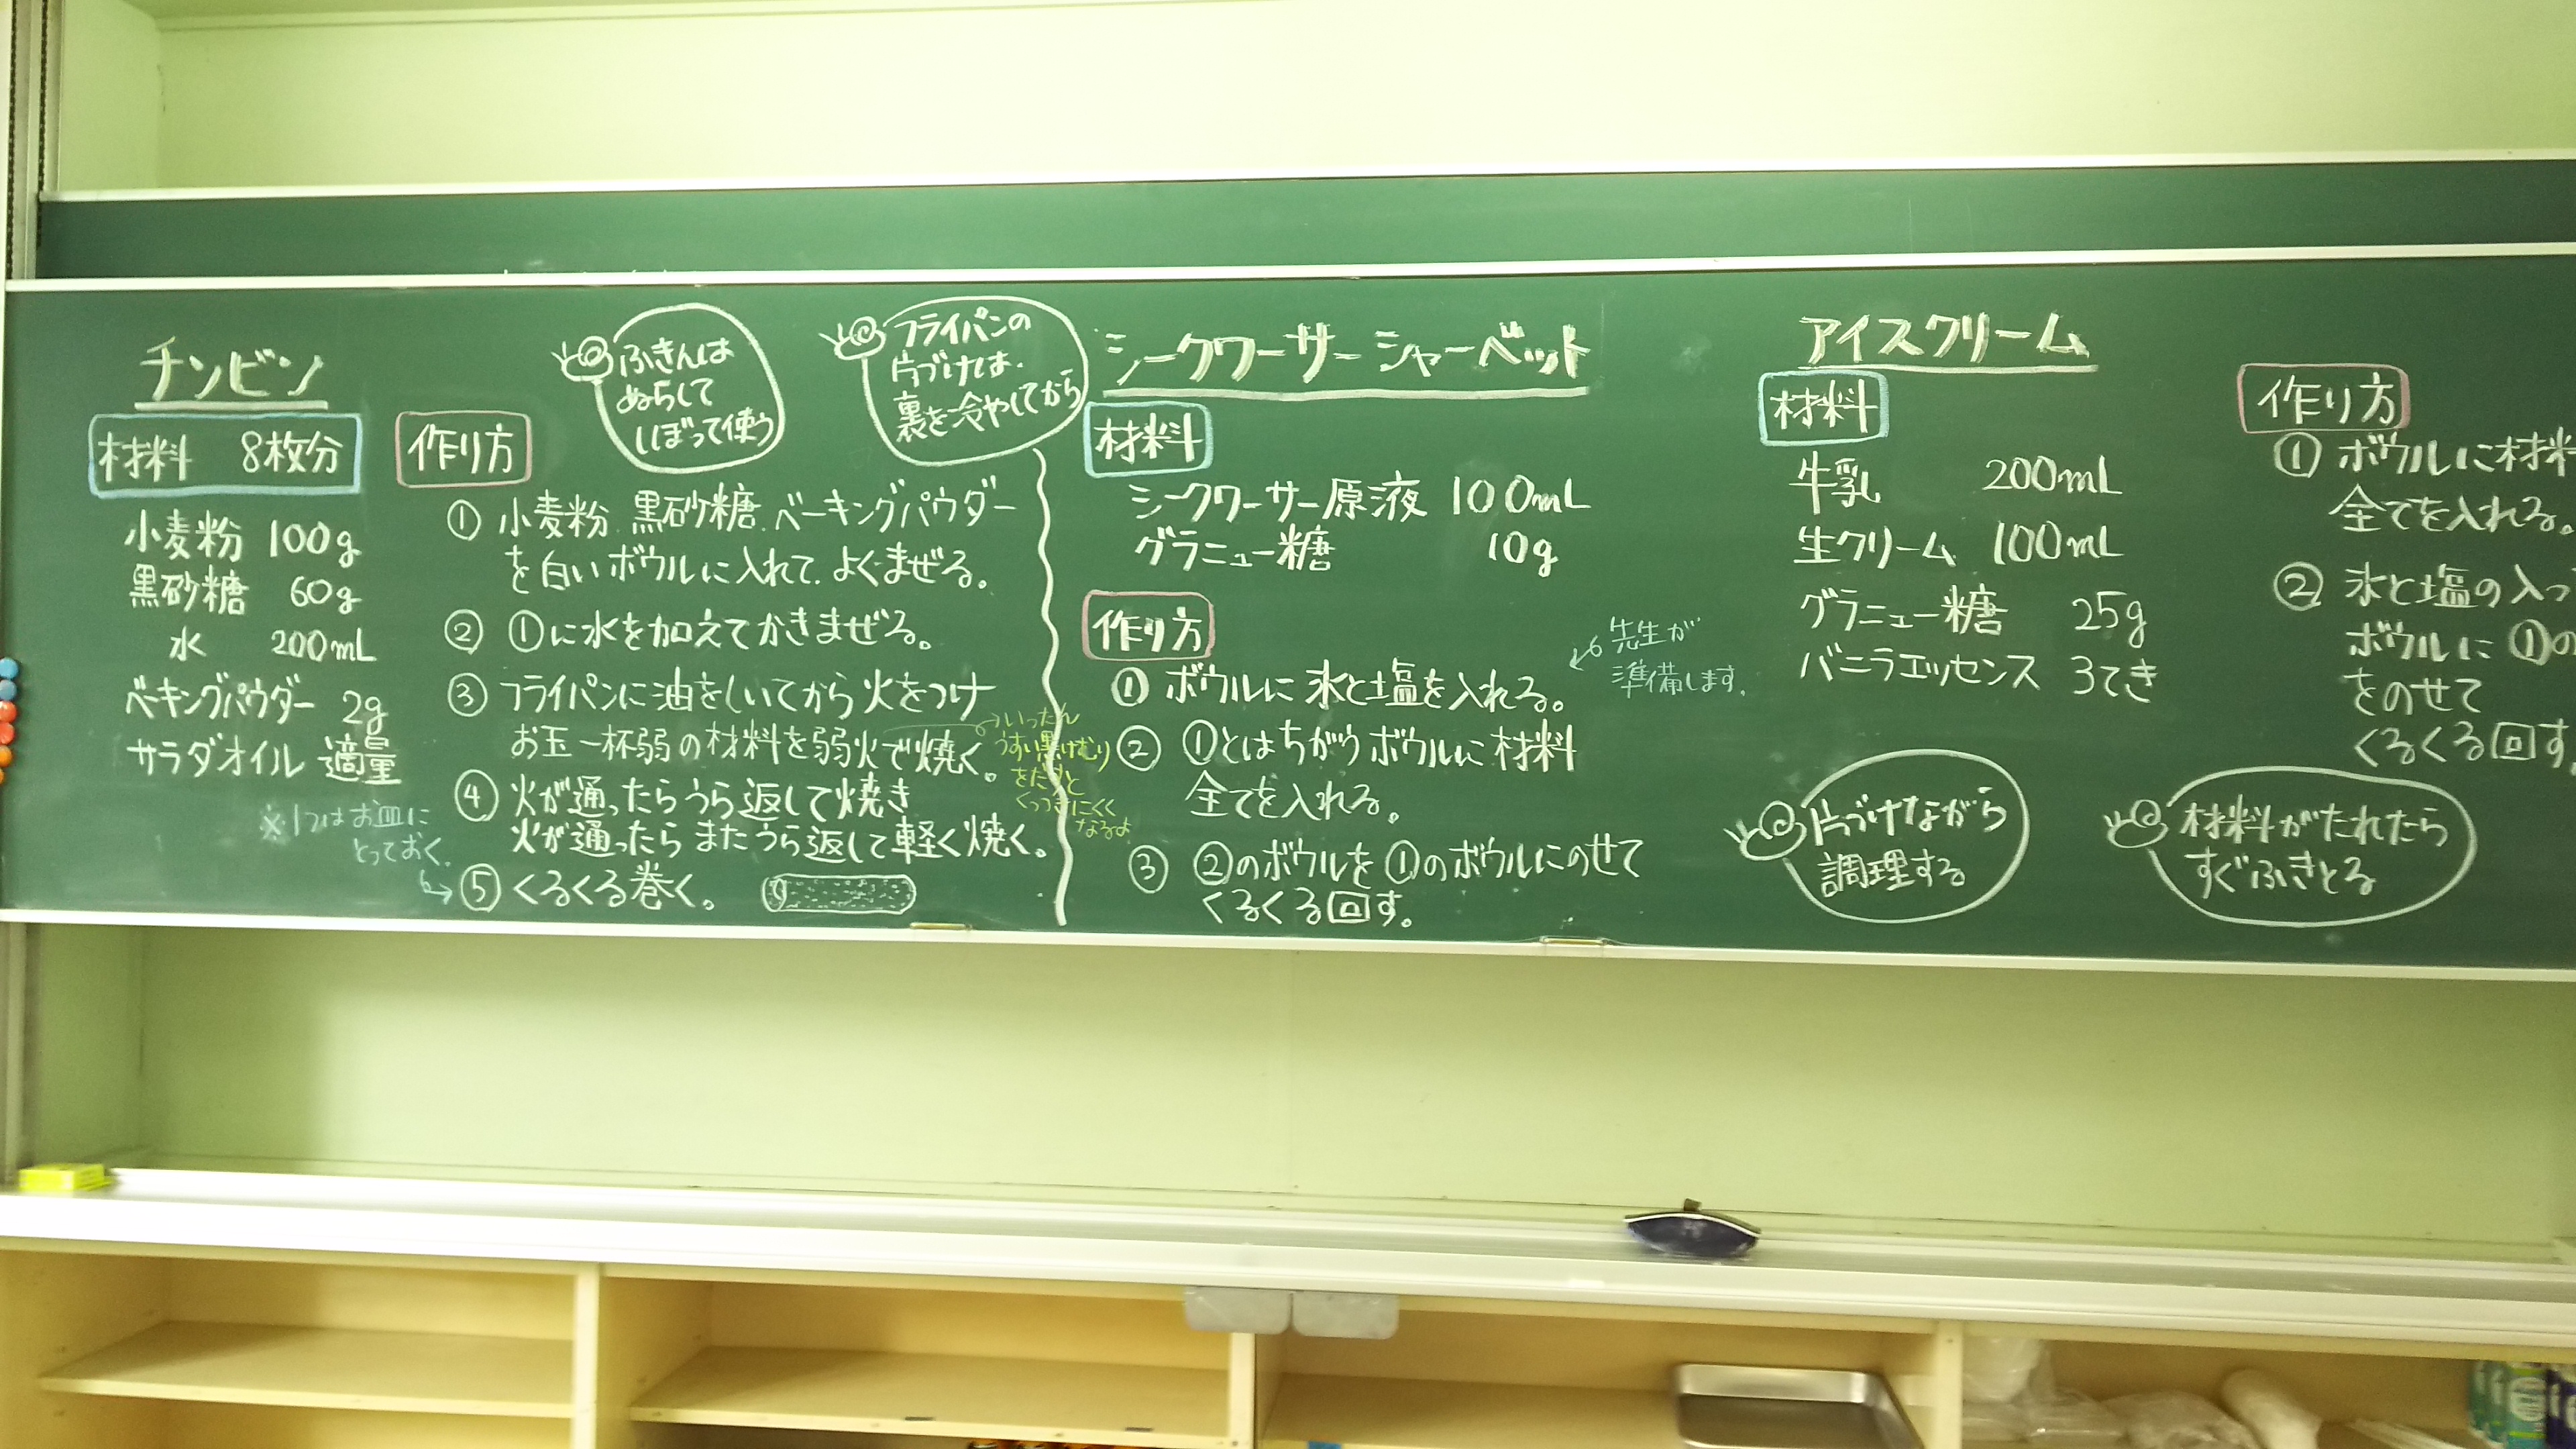 チンビン
材料 8枚分
小麦粉 100g
黒砂糖 60g
水 200mL
ベーキングパウダー 2g
サラダオイル 適量
※1つはお皿に
とっておく。
作り方
ふきんは
ぬらして
しぼって使う
フライパンの
片づけは、
裏を冷やしてから
① 小麦粉、黒砂糖、ベーキングパウダー
を白いボウルに入れて、よくまぜる。
② ①に水を加えてかきまぜる。
③ フライパンに油をしいてから火をつけ
お玉一杯弱の材料を弱火で焼く。
いったん
うすい黒けむり
をだすと
くっつきにくく
なるよ
④ 火が通ったらうら返して焼き
火が通ったらまたうら返して軽く焼く。
⑤ くるくる巻く。
シークワーサーシャーベット
材料
シークワーサー原液 100mL
グラニュー糖 10g
作り方
① ボウルに氷と塩を入れる。
先生が
準備します。
② ①とはちがうボウルに材料
全てを入れる。
③ ②のボウルを①のボウルにのせて
くるくる回す。
アイスクリーム
材料
牛乳 200mL
生クリーム 100mL
グラニュー糖 25g
バニラエッセンス 3てき
作り方
① ボウルに材料
全てを入れる。
② 氷と塩の入っ
ボウルに①の
をのせて
くるくる回す。
片づけながら
調理する
材料がたれたら
すぐふきとる